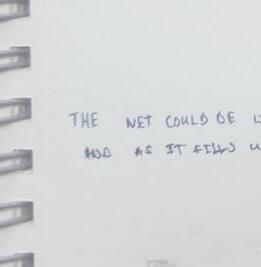 THE NET COULD BE
AND AS IT FILLS U